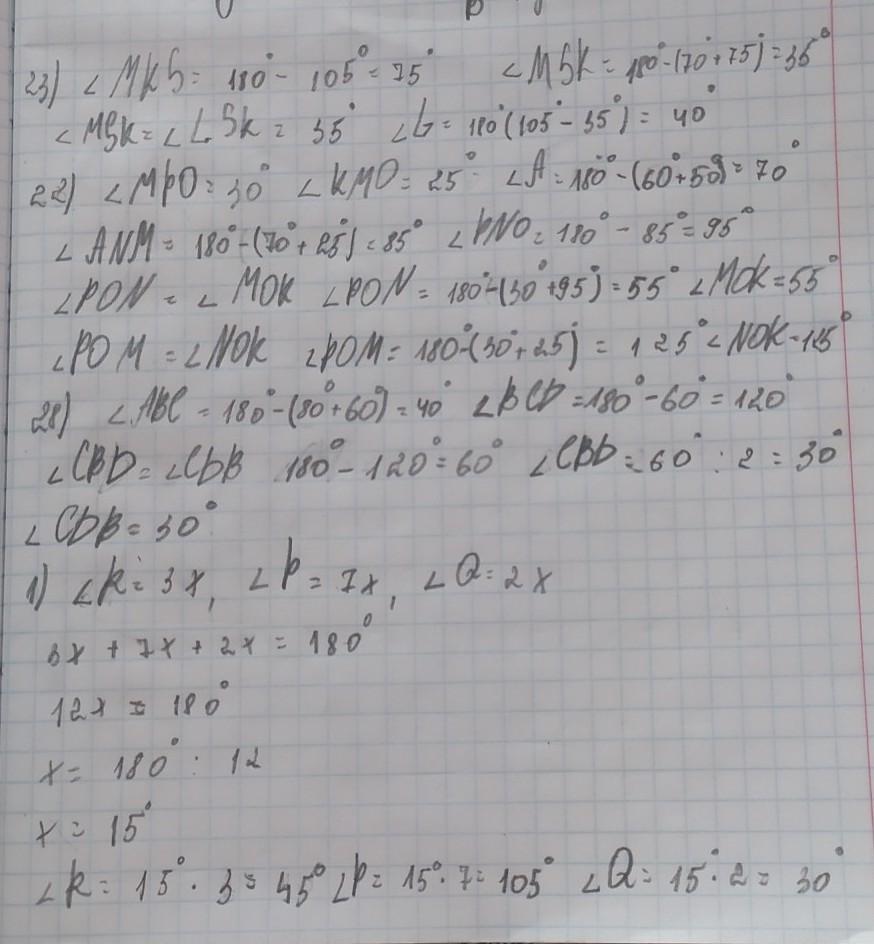 23) ∠MKS = 180° - 105° = 75° ∠MSK = 180° - (70° + 75°) = 35°
∠MSK = ∠LSK = 35° ∠L = 180° (105° - 35°) = 40°
22) ∠MPO = 30° ∠KMO = 25° ∠A = 180° - (60° + 50°) = 70°
∠ANM = 180° - (70° + 25°) = 85° ∠PNO = 180° - 85° = 95°
∠PON = ∠MOK ∠PON = 180° - (30° + 95°) = 55° ∠MOK = 55°
∠POM = ∠NOK ∠POM = 180° - (30° + 25°) = 125° ∠NOK = 125°
28) ∠ABC = 180° - (80° + 60°) = 40° ∠BCD = 180° - 60° = 120°
∠CBD = ∠CDB 180° - 120° = 60° ∠CBD = 60° : 2 = 30°
∠CDB = 30°
1) ∠K = 3x, ∠P = 7x, ∠Q = 2x
3x + 7x + 2x = 180°
12x = 180°
x = 180° : 12
x = 15°
∠K = 15° · 3 = 45° ∠P = 15° · 7 = 105° ∠Q = 15° · 2 = 30°